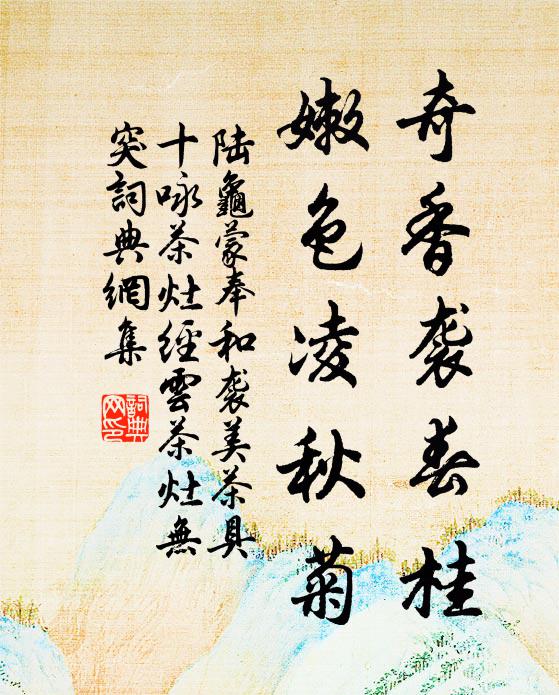 奇香袭春桂
嫩色凌秋菊
陆龜蒙奉和袭美茶具
十咏茶灶經雲茶灶無
突詞典網集
詞典
网印